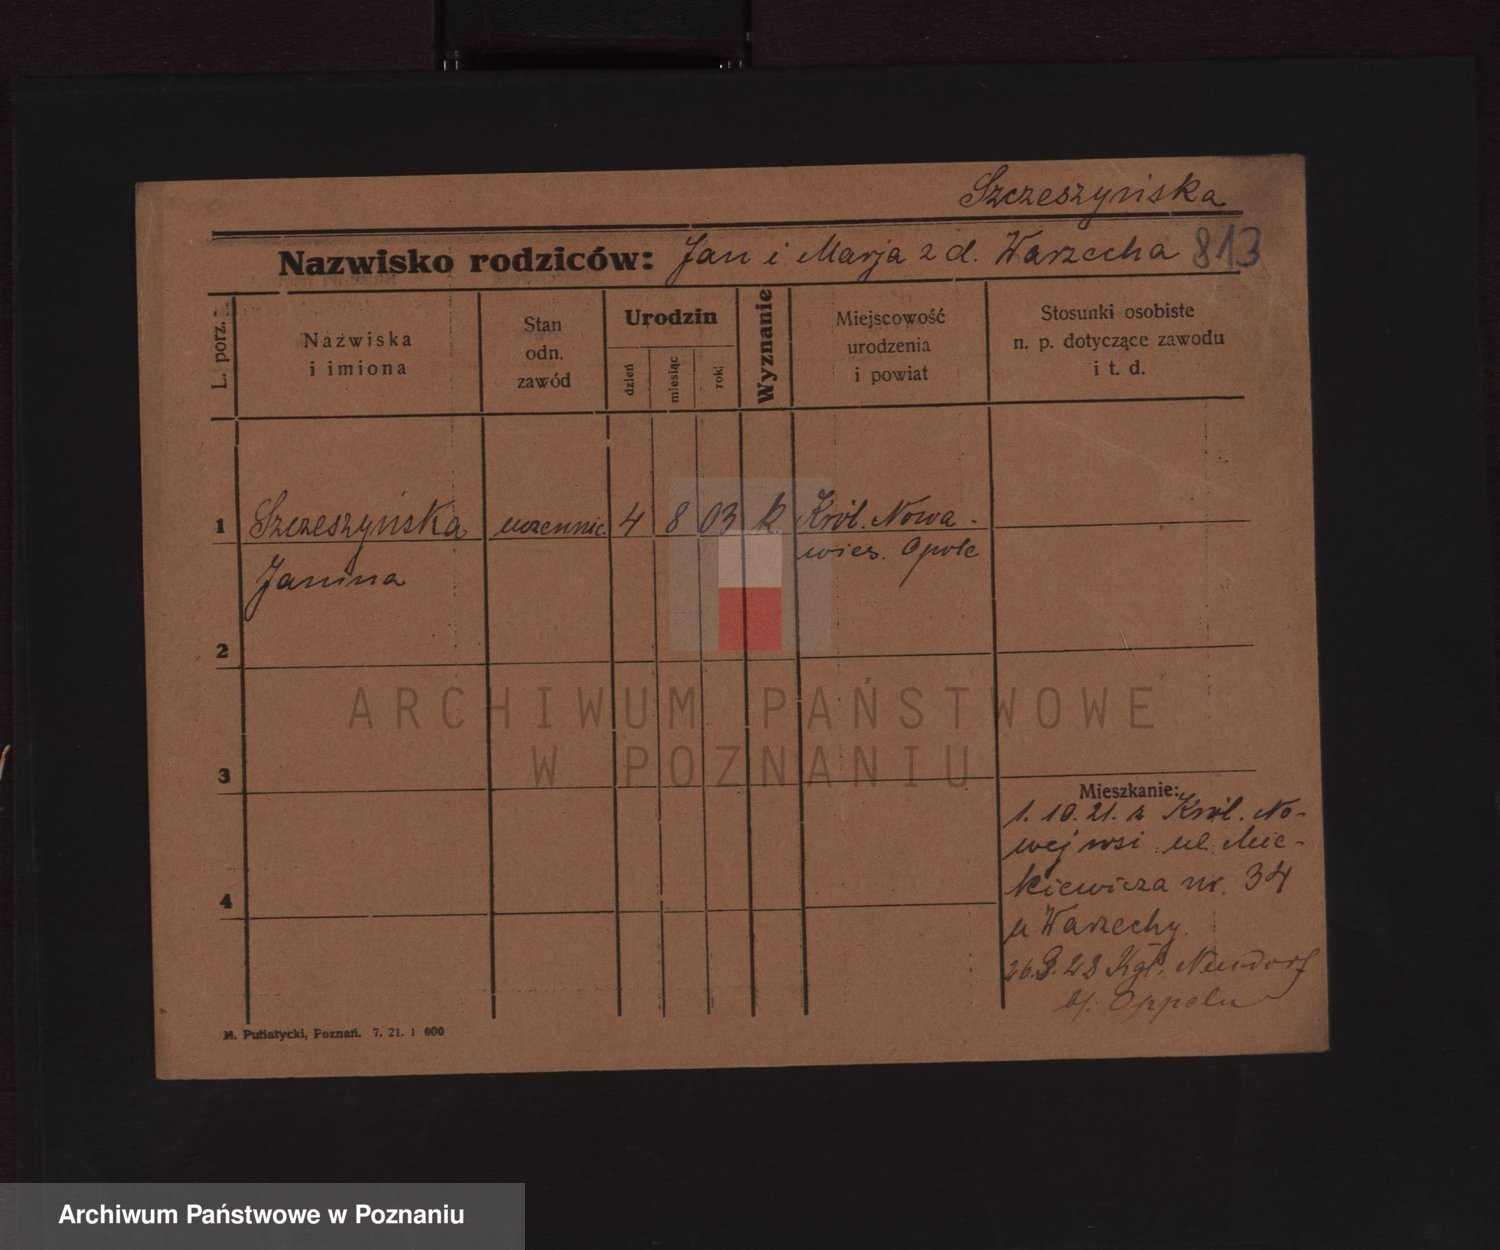 Szczeszyńska
Nazwisko rodziców: Jan i Marja z d. Warzecha 813
L. porz.
Nazwiska
i imiona
Stan
odn.
zawód
Urodzin
dzień
miesiąc
rok
Wyznanie
Miejscowość
urodzenia
i powiat
Stosunki osobiste
n. p. dotyczące zawodu
i t. d.
1 Szczeszyńska uczennic. 4 8 03 k. Król. Nowa-
Janina wieś. Opole
2
3
4
Mieszkanie:
1. 10. 21. z Król. No-
wej wsi ul Mic-
kiewicza nr. 34
u Warzechy.
26.9.22 Kgl. Neudorf
b/. Oppeln
M. Putiatycki, Poznań. 7. 21. 1 000
ARCHIWUM PAŃSTWOWE
W POZNANIU
Archiwum Państwowe w Poznaniu